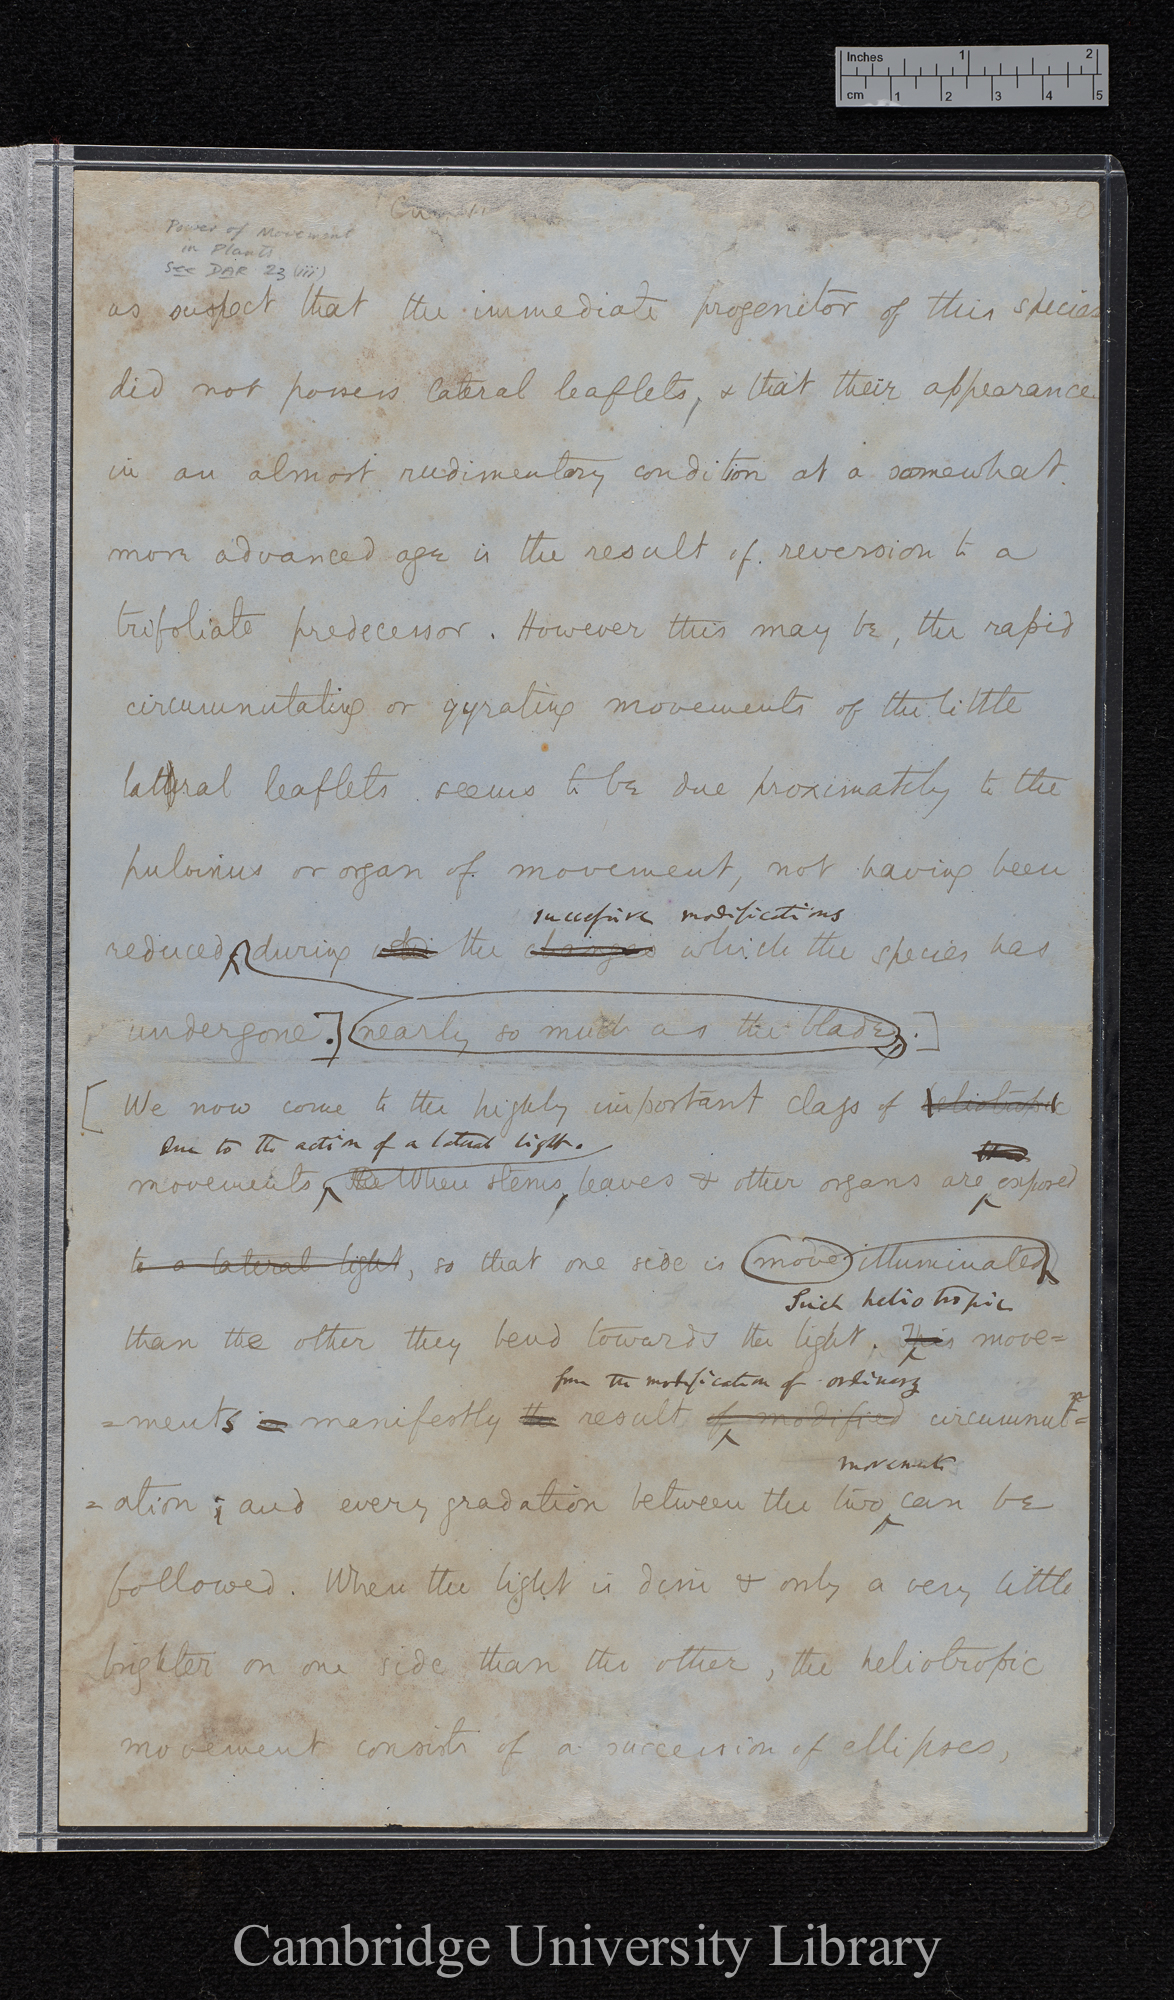 Inches 1 2
cm 1 2 3 4 5
Power of Movement
in Plants
See DAR 23 (viii)
us suspect that the immediate progenitor of this species
did not possess lateral leaflets, & that their appearance
in an almost rudimentary condition at a somewhat
more advanced age is the result of reversion to a
trifoliate predecessor. However this may be, the rapid
circumnutating or gyrating movements of the little
lateral leaflets seems to be due proximately to the
pulvinus or organ of movement, not having been
successive modifications
reduced, during the changes which the species has
undergone.] nearly so much as the blade,.]
[We now come to the highly important class of heliotropic
due to the action of a lateral light.
movements, the When stems, leaves & other organs are exposed
to a lateral light, so that one side is more illuminated
Such heliotropic
than the other they bend towards the light. This move=
from the modification of ordinary
=ments is manifestly the result of modified circumnut=
movements
=ation; and every gradation between the two can be
followed. When the light is dim & only a very little
brighter on one side than the other, the heliotropic
movement consists of a succession of ellipses,
Cambridge University Library